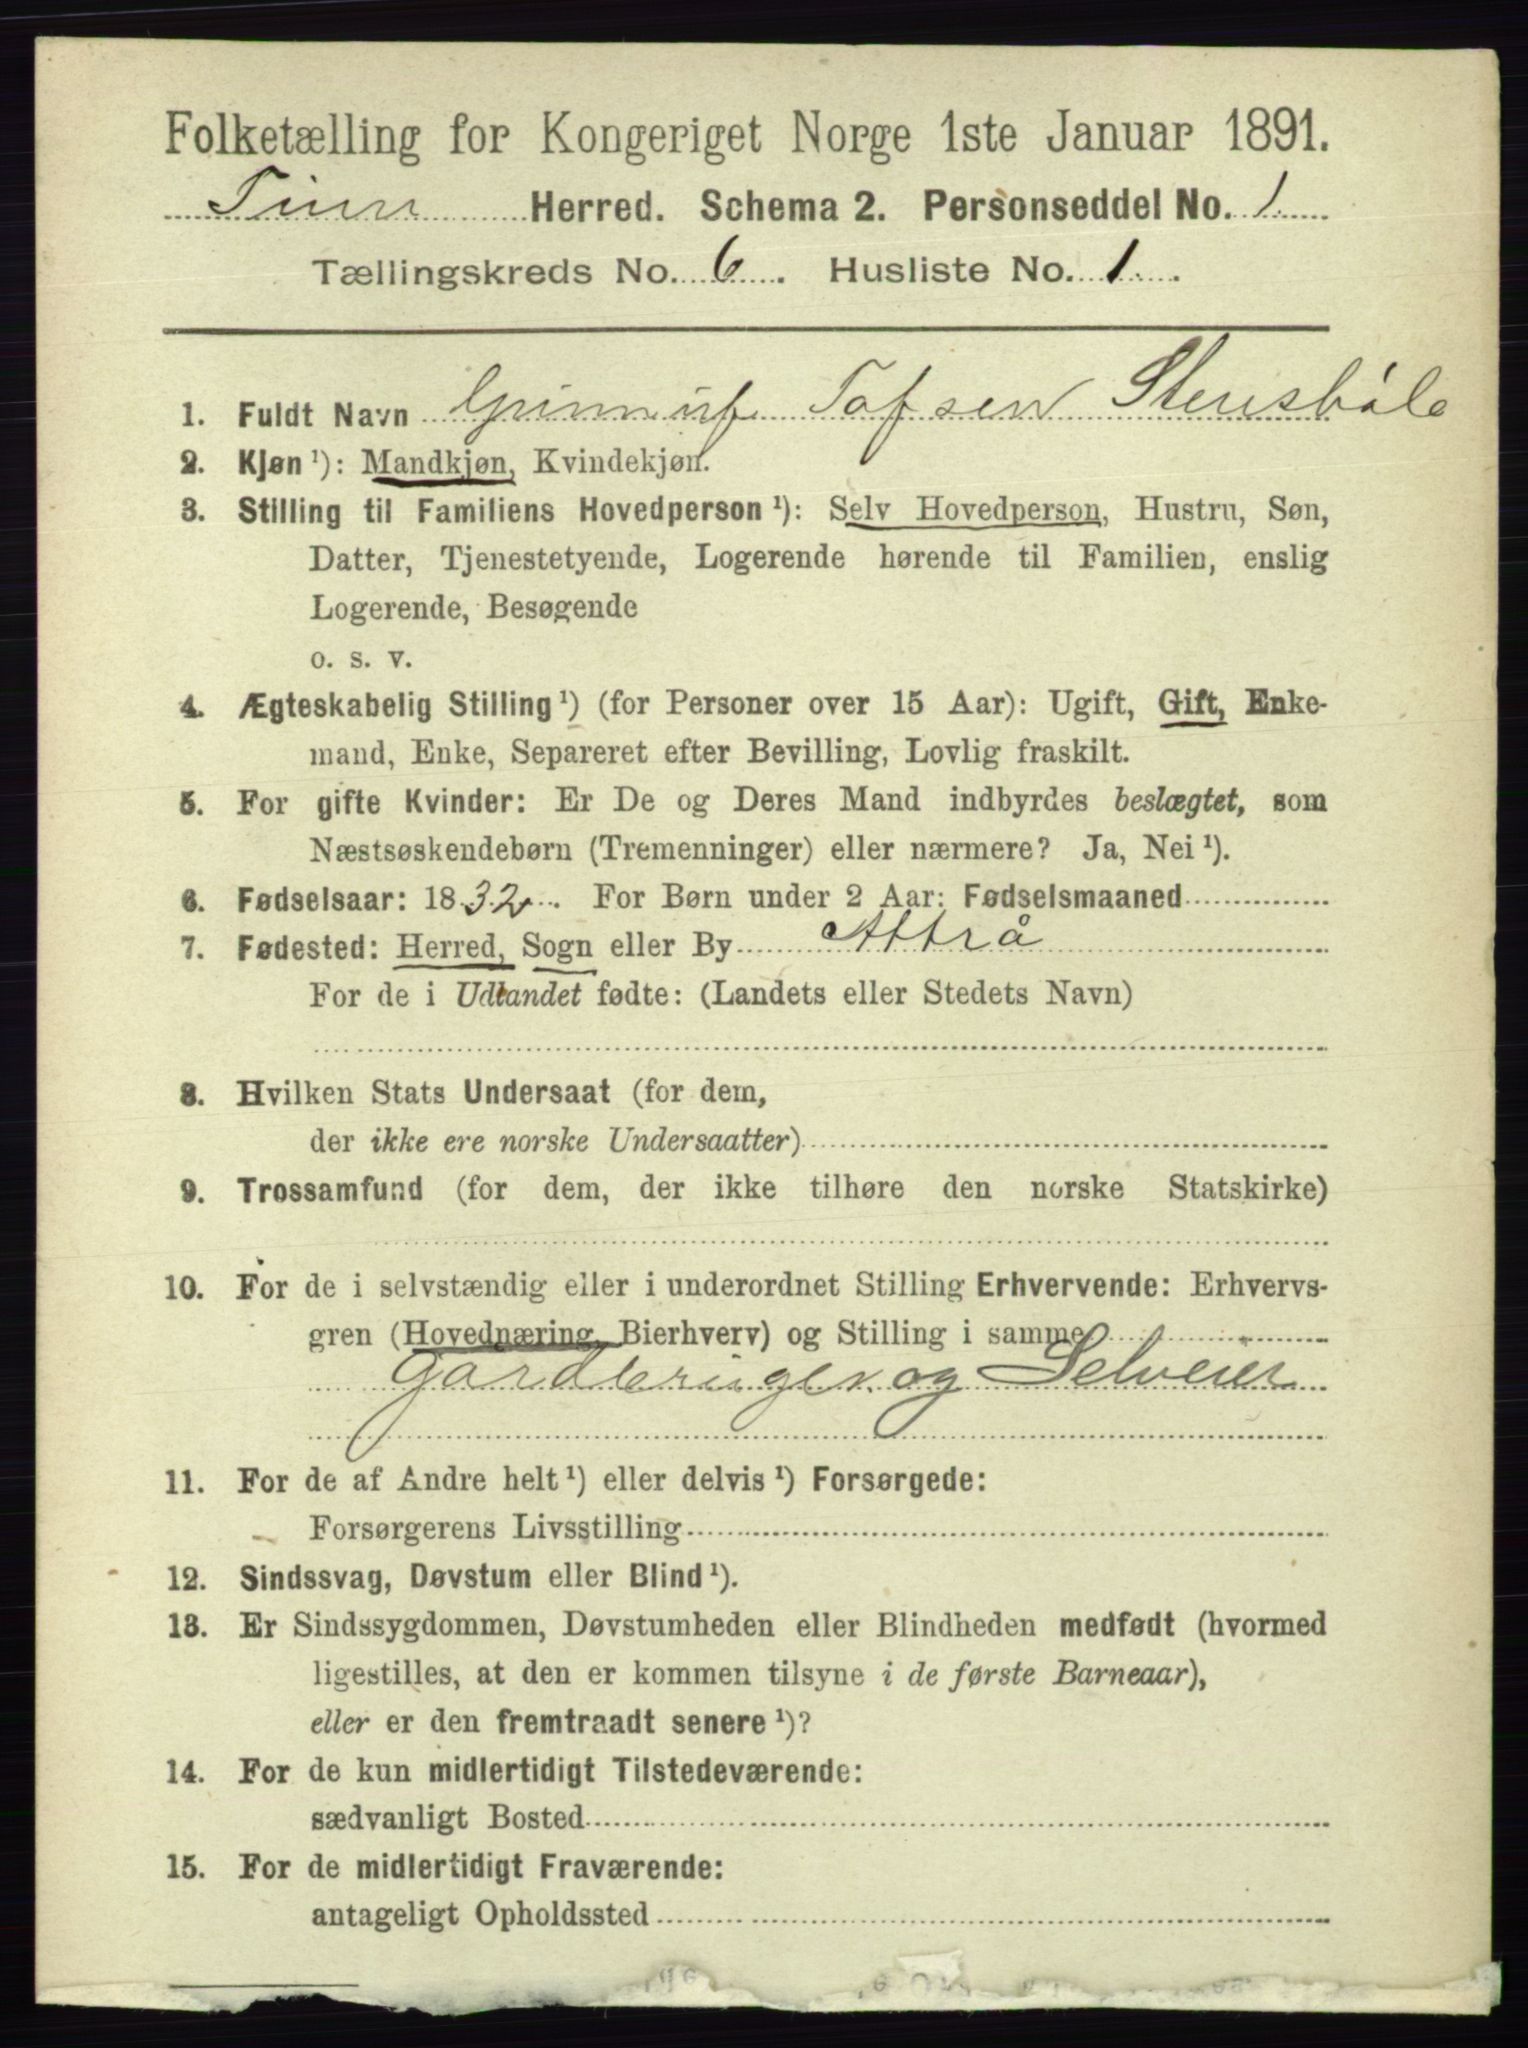 Folketælling for Kongeriget Norge 1ste Januar 1891.
Tinn Herred. Schema 2. Personseddel No. 1
Tællingskreds No. 6. Husliste No. 1.
1. Fuldt Navn Tofsen Stensbøle
2. Kjøn ¹): Mandkjøn, Kvindekjøn.
3. Stilling til Familiens Hovedperson ¹): Selv Hovedperson, Hustru, Søn,
Datter, Tjenestetyende, Logerende hørende til Familien, enslig
Logerende, Besøgende
o. s. v.
4. Ægteskabelig Stilling ¹) (for Personer over 15 Aar): Ugift, Gift, Enke-
mand, Enke, Separeret efter Bevilling, Lovlig fraskilt.
5. For gifte Kvinder: Er De og Deres Mand indbyrdes beslægtet, som
Næstsøskendebørn (Tremenninger) eller nærmere? Ja, Nei ¹).
6. Fødselsaar: 1832. For Børn under 2 Aar: Fødselsmaaned
7. Fødested: Herred, Sogn eller By Attrå
For de i Udlandet fødte: (Landets eller Stedets Navn)
8. Hvilken Stats Undersaat (for dem,
der ikke ere norske Undersaatter)
9. Trossamfund (for dem, der ikke tilhøre den norske Statskirke)
10. For de i selvstændig eller i underordnet Stilling Erhvervende: Erhvervs-
gren (Hovednæring, Bierhverv) og Stilling i samme
Gardbruger og Selveier
11. For de af Andre helt ¹) eller delvis ¹) Forsørgede:
Forsørgerens Livsstilling
12. Sindssvag, Døvstum eller Blind ¹).
13. Er Sindssygdommen, Døvstumheden eller Blindheden medfødt (hvormed
ligestilles, at den er kommen tilsyne i de første Barneaar),
eller er den fremtraadt senere ¹)?
14. For de kun midlertidigt Tilstedeværende:
sædvanligt Bosted
15. For de midlertidigt Fraværende:
antageligt Opholdssted